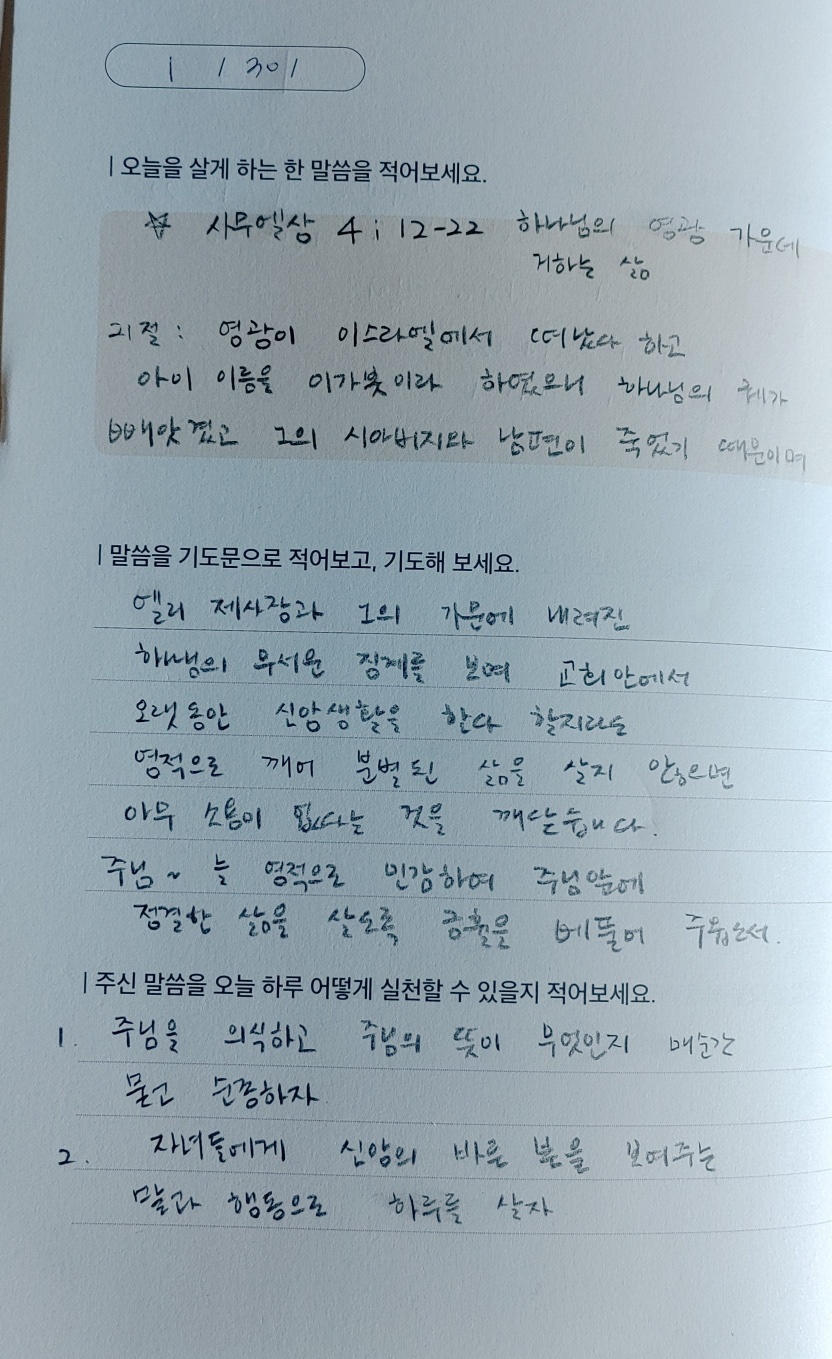 1 / 30 /
| 오늘을 살게 하는 한 말씀을 적어보세요.
☆ 사무엘상 4 ; 12-22 하나님의 영광 가운데
거하는 삶
21절 : 영광이 이스라엘에서 떠났다 하고
아이 이름을 이가봇이라 하였으니 하나님의 궤가
빼앗겼고 그의 시아버지와 남편이 죽었기 때문이며
| 말씀을 기도문으로 적어보고, 기도해 보세요.
엘리 제사장과 그의 가문에 내려진
하나님의 무서운 징계를 보며 교회안에서
오랫동안 신앙생활을 한다 할지라도
영적으로 깨어 분별된 삶을 살지 않으면
아무 소용이 없다는 것을 깨닫습니다.
주님~ 늘 영적으로 민감하여 주님앞에
정결한 삶을 살도록 긍휼을 베풀어 주옵소서.
| 주신 말씀을 오늘 하루 어떻게 실천할 수 있을지 적어보세요.
1. 주님을 의식하고 주님의 뜻이 무엇인지 매순간
묻고 순종하자
2. 자녀들에게 신앙의 바른 본을 보여주는
말과 행동으로 하루를 살자